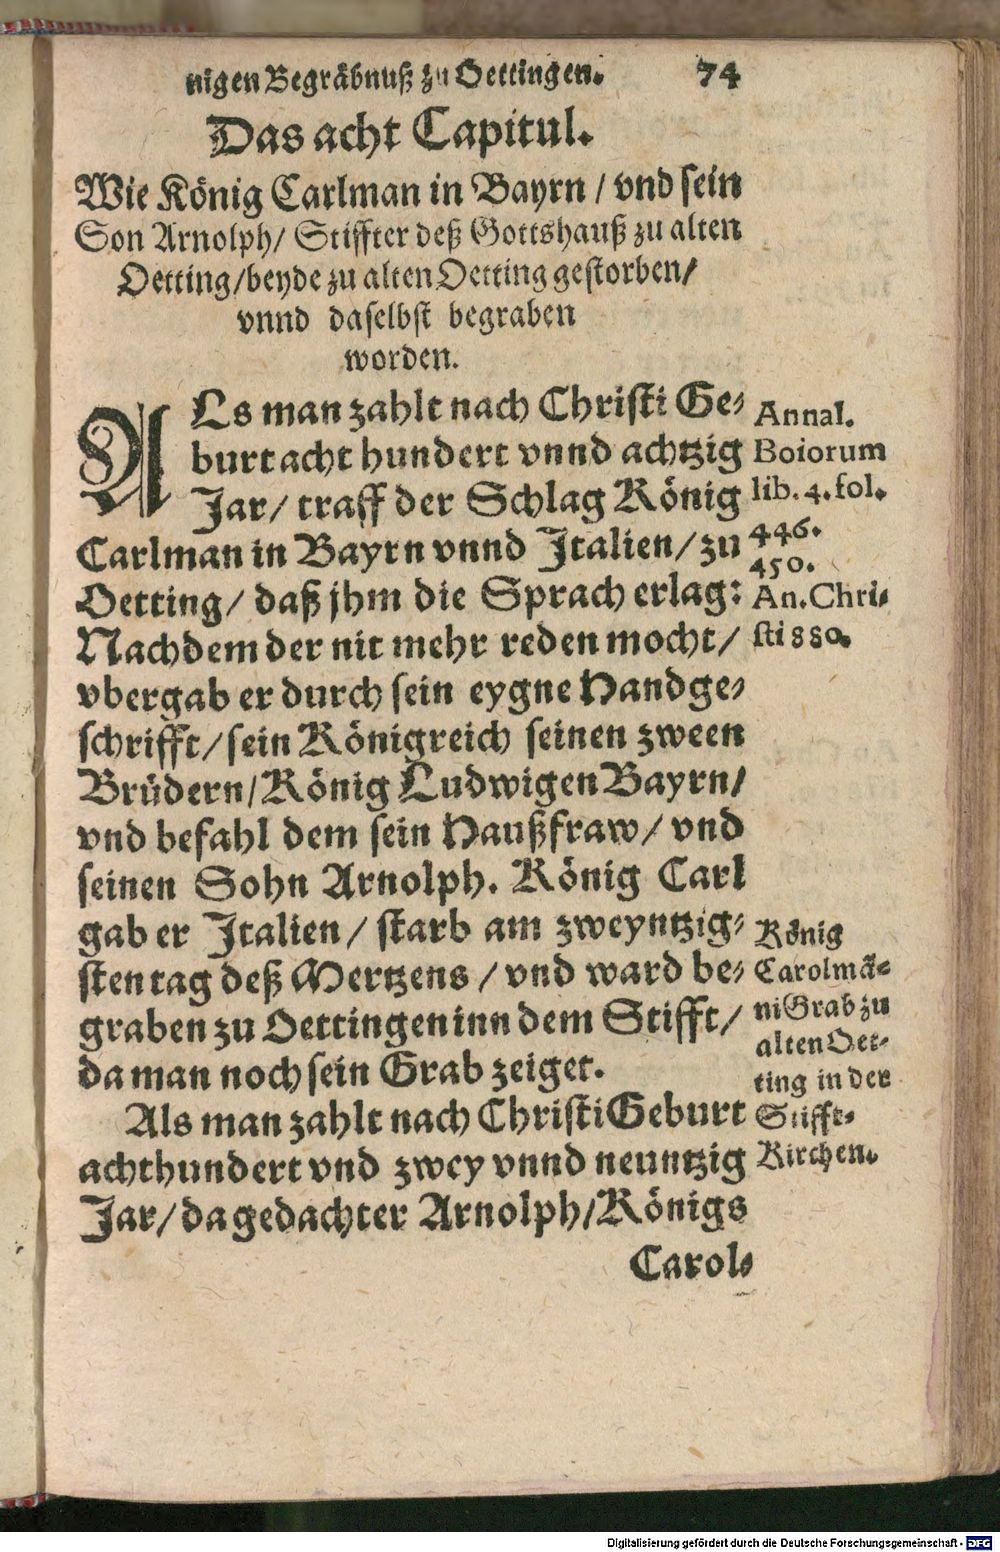 nigen Begräbnuß zu Oettingen. 74
Das acht Capitul.
Wie König Carlman in Bayrn / vnd sein
Son Arnolph / Stiffter deß Gottshauß zu alten
Oetting / beyde zu alten Oetting gestorben /
vnnd daselbst begraben
worden.
ALs man zahlt nach Christi Ge-
burt acht hundert vnnd achtzig
Jar / traff der Schlag König
Carlman in Bayrn vnnd Italien / zu
Oetting / daß jhm die Sprach erlag:
Nachdem der nit mehr reden mocht /
vbergab er durch sein eygne Handge-
schrifft / sein Königreich seinen zween
Brüdern / König Ludwigen Bayrn /
vnd befahl dem sein Haußfraw / vnd
seinen Sohn Arnolph. König Carl
gab er Italien / starb am zweyntzig-
sten tag deß Mertzens / vnd ward be-
graben zu Oettingen inn dem Stifft /
da man noch sein Grab zeiget.
Als man zahlt nach Christi Geburt
achthundert vnd zwey vnnd neuntzig
Jar / da gedachter Arnolph / Königs
Carol-
Annal.
Boiorum
lib. 4. fol.
446.
450.
An. Chri-
sti 880.
König
Carolmā-
ni Grab zu
alten Oet-
ting in der
Stifft-
Kirchen.
Digitalisierung gefördert durch die Deutsche Forschungsgemeinschaft - DFG